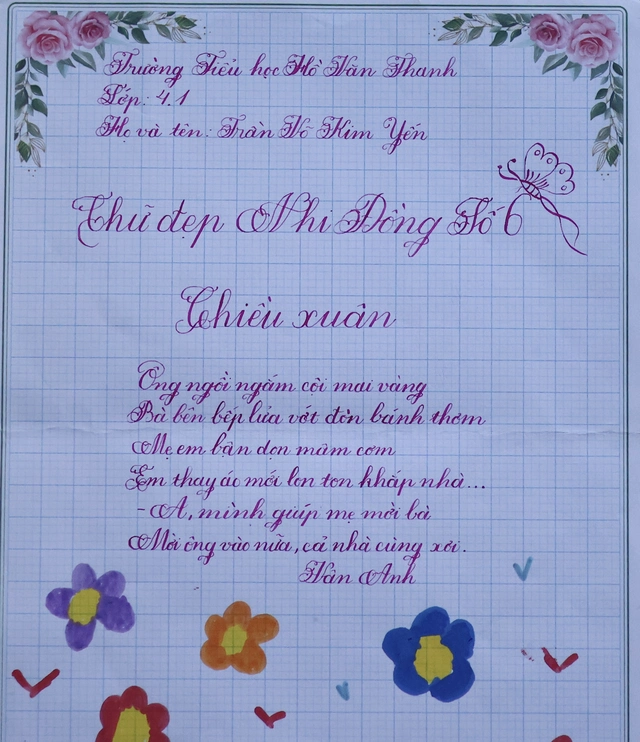 Trường Tiểu học Hồ Văn Thanh
Lớp: 4.1
Họ và tên: Trần Võ Kim Yến
Chữ đẹp Nhi Đồng Số 6
Chiều xuân
Ông ngồi ngắm cội mai vàng
Bà bên bếp lửa vớt đòn bánh thơm
Mẹ em bận dọn mâm cơm
Em thay áo mới lon ton khắp nhà...
- A, mình giúp mẹ mời bà
Mời ông vào nữa, cả nhà cùng xơi.
Vân Anh